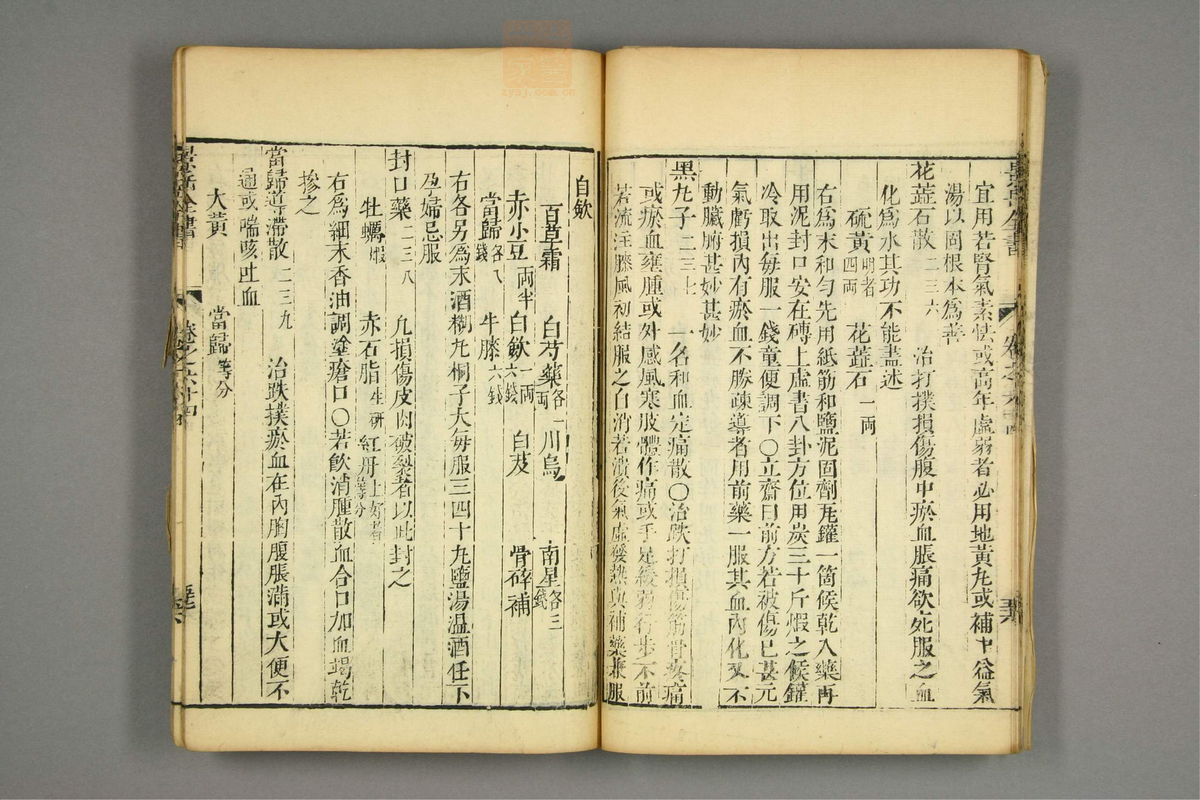 景岳全書 卷之六十四
宜用若腎氣素怯或高年虛弱者必用地黃丸或補中益氣
湯以固根本爲善
花蕋石散二三六 治打撲損傷腹中瘀血脹痛欲死服之血
化爲水其功不能盡述
硫黃明者四兩 花蕋石一兩
右爲末和勻先用紙筋和鹽泥固劑瓦罐一箇候乾入藥再
用泥封口安在磚上虛書八卦方位用炭三十斤煆之候罐
冷取出每服一錢童便調下○立齋曰前方若被傷已甚元
氣虧損內有瘀血不勝疎導者用前藥一服其血內化又不
動臟腑甚妙甚妙
黑丸子二三七 一名和血定痛散○治跌打損傷筋骨疼痛
或瘀血壅腫或外感風寒肢體作痛或手足緩弱行步不前
若流注膝風初結服之自消若潰後氣虛發熱與補藥兼服
自歛
百草霜 白芍藥各一兩 川烏 南星各三錢
赤小豆兩半 白歛一兩六錢 白芨 骨碎補
當歸各八錢 牛膝六錢
右各另爲末酒糊丸桐子大每服三四十丸鹽湯温酒任下
孕婦忌服
封口藥二三八 凡損傷皮肉破裂者以此封之
牡蠣煆 赤石脂生研 紅丹上好者等分
右爲細末香油調塗瘡口○若飲消腫散血合口加血竭乾
摻之
當歸導滯散二三九 治跌撲瘀血在內胸腹脹滿或大便不
通或喘咳吐血
大黃 當歸等分
景岳全書 卷之六十四
zysj.com.cn